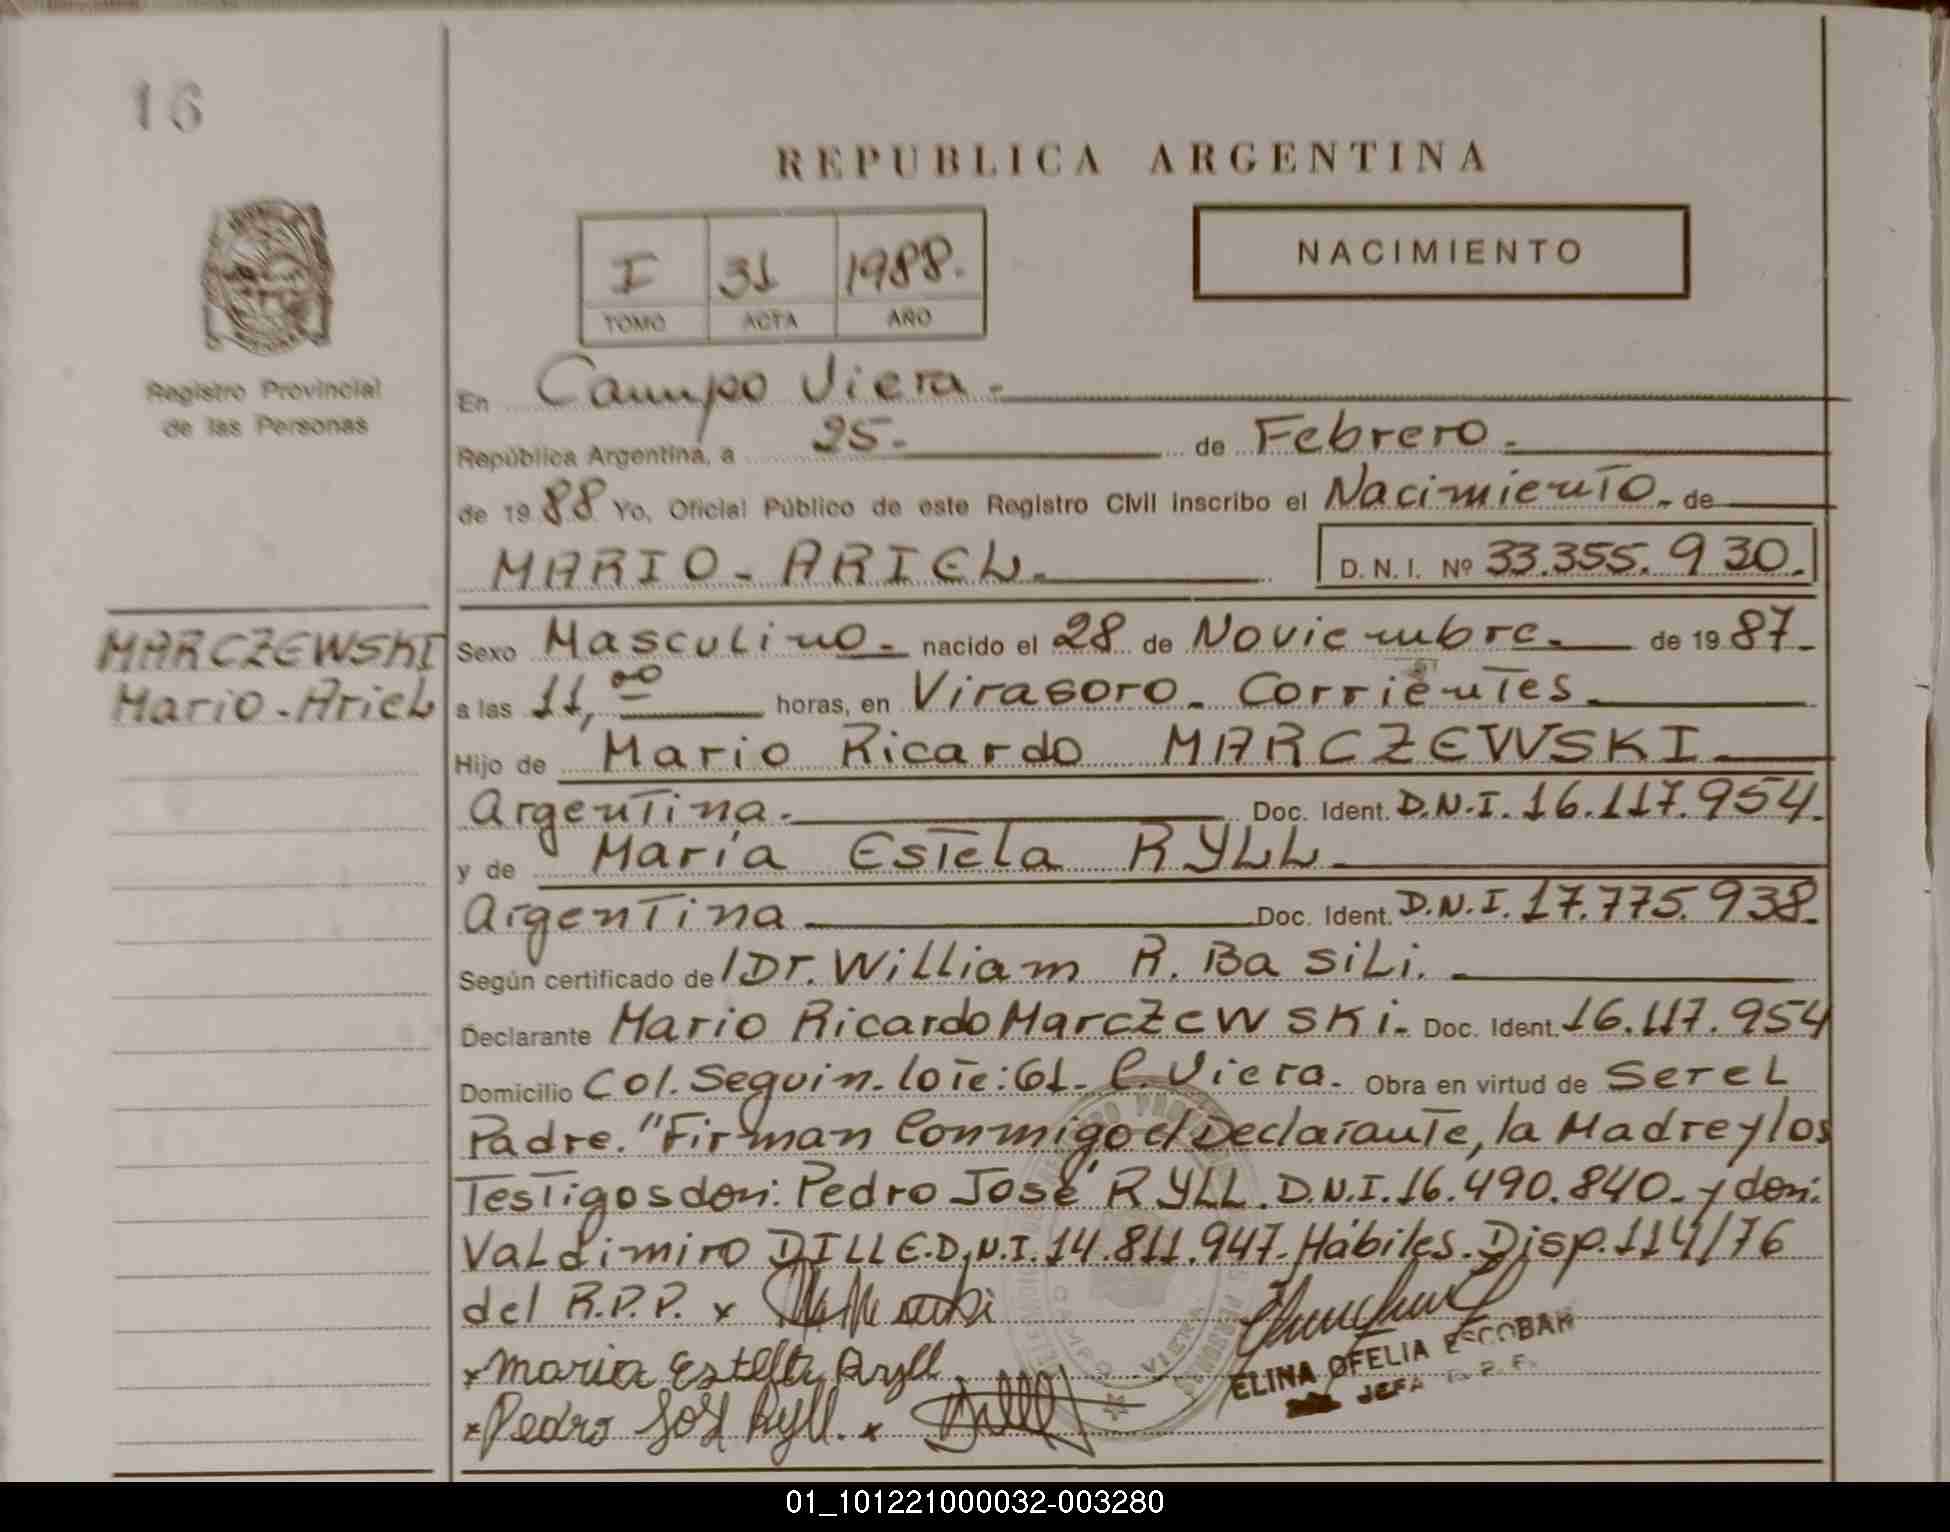 16
REPUBLICA ARGENTINA
NACIMIENTO
I 31 1988.
TOMO ACTA AÑO
Registro Provincial
de las Personas
En Campo Viera.
República Argentina, a 25. de Febrero.
de 19 88 Yo, Oficial Público de este Registro Civil inscribo el Nacimiento. de
MARIO - ARIEL. D. N. I. Nº 33.355.930.
MARCZEWSKI
Mario - Ariel
Sexo Masculino. nacido el 28 de Noviembre. de 19 87.
a las 11,00 horas, en Virasoro - Corrientes.
Hijo de Mario Ricardo MARCZEWSKI.
Argentina. Doc. Ident. D.N.I. 16.117.954.
y de María Estela RYLL.
Argentina Doc. Ident. D.N.I. 17.775.938.
Según certificado de / Dr. William R. Basili.
Declarante Mario Ricardo Marczewski. Doc. Ident. 16.117.954
Domicilio Col. Seguin. lote: 61. C. Viera. Obra en virtud de Ser el
Padre. "Firman Conmigo el Declarante, la Madre y los
Testigos don: Pedro José RYLL. D.N.I. 16.490.840. y don:
Valdimiro DILLE. D.N.I. 14.811.947. Hábiles. Disp. 114/76
del R.P.P. x
x Maria Estella Ryll
x Pedro José Ryll. x
CAMPO VIERA
ELINA OFELIA ESCOBAR
JEFA
01_101221000032-003280